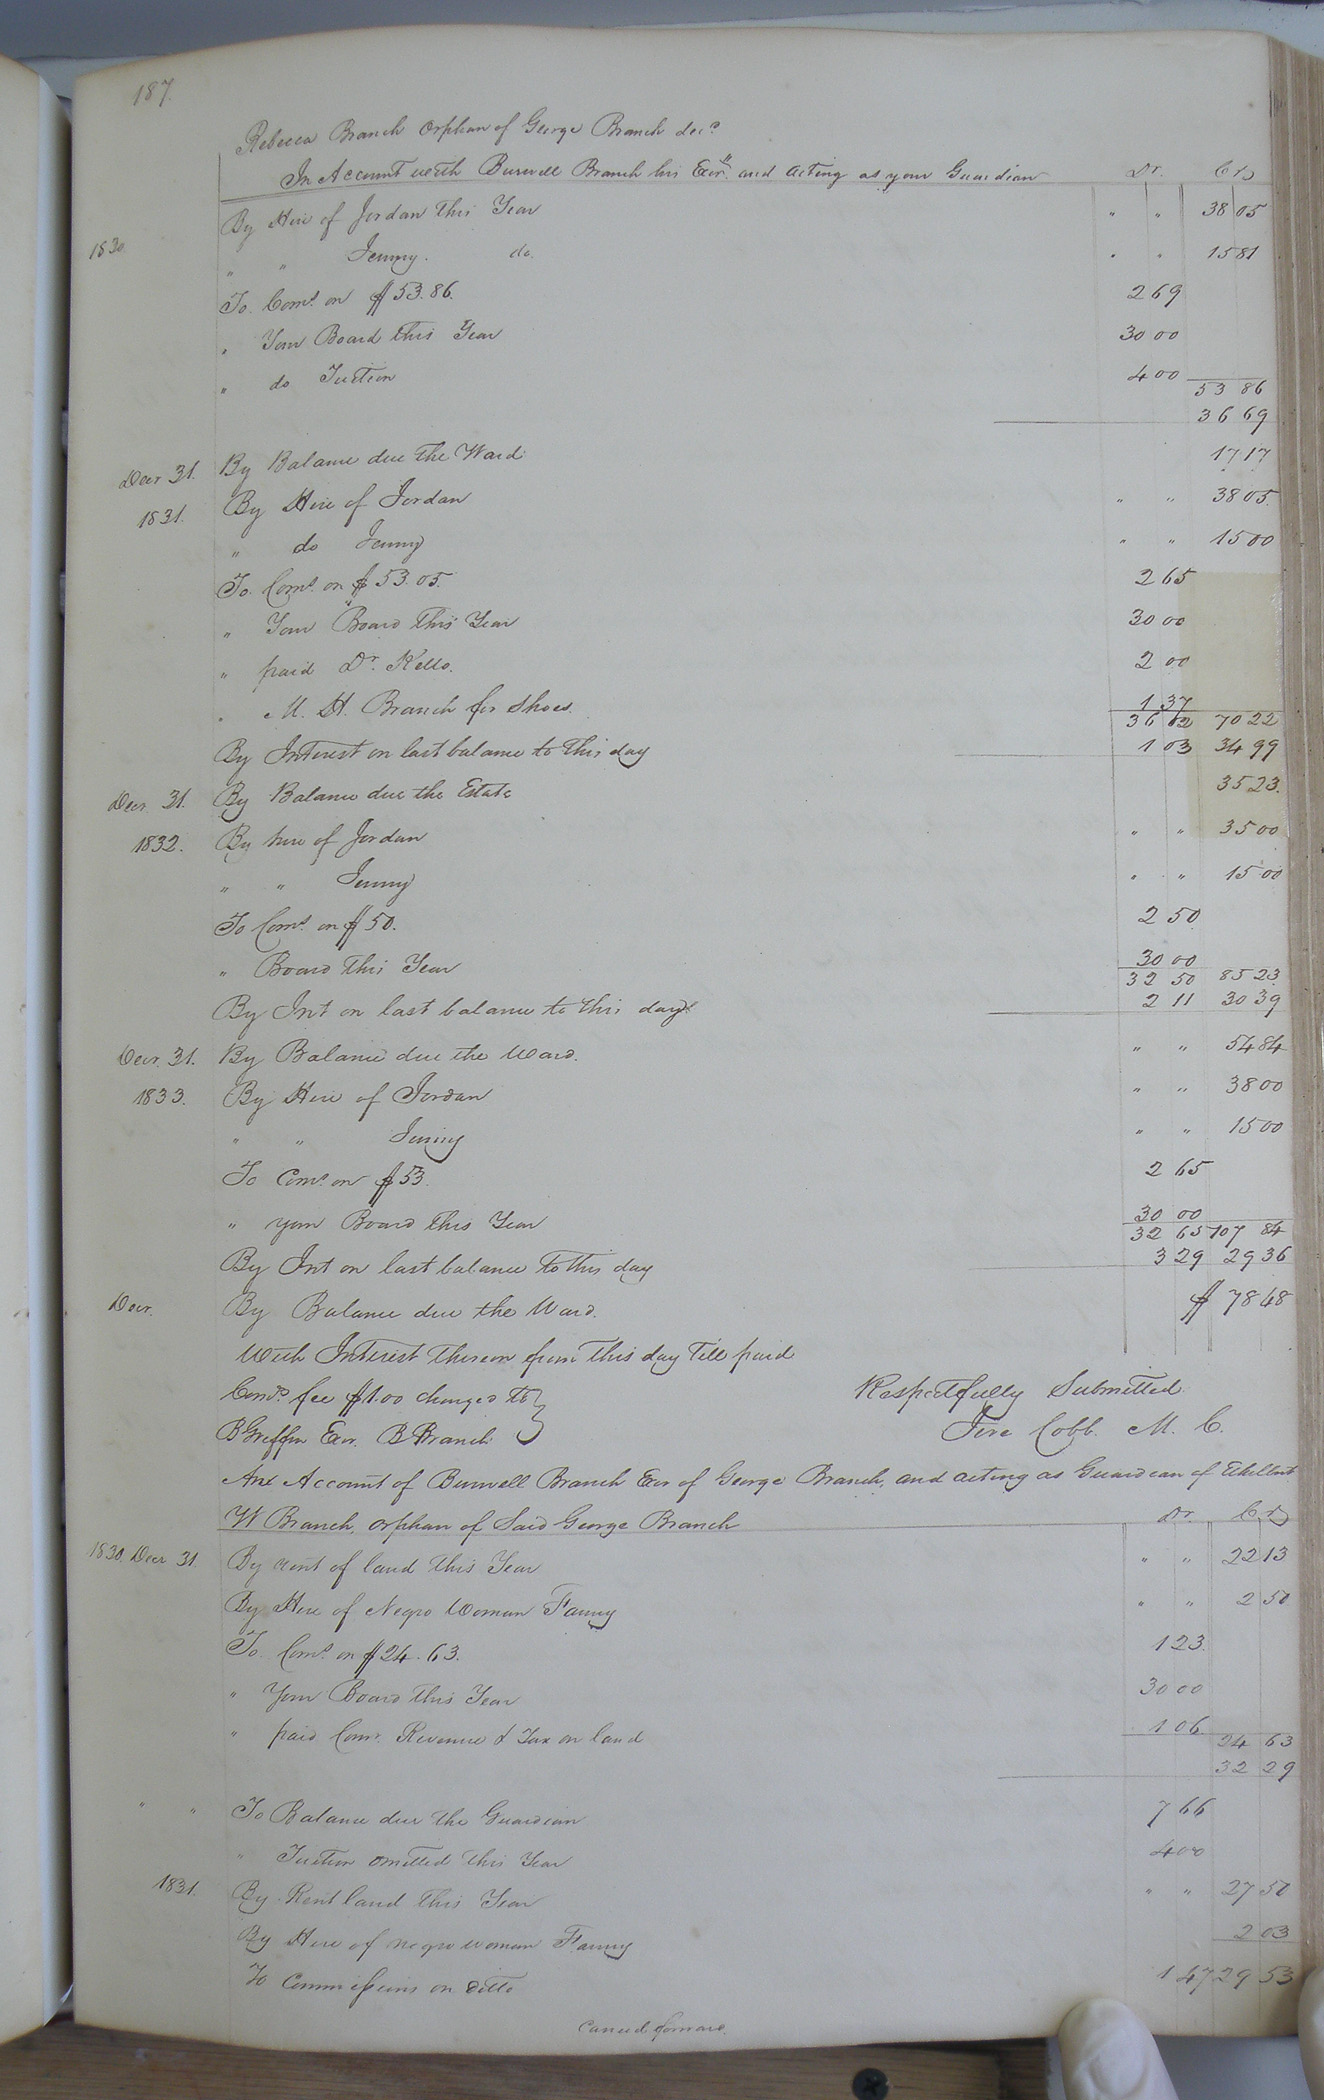 187.
Rebecca Branch Orphan of George Branch decd
In Account with Burwell Branch his Exr. and acting as your Guardian Dr. Crs
1830 By Hire of Jordan this Year " " 38 05
" " Jenny. do. " " 15 81
To Coms. on $53.86. 2 69
" Your Board this Year 30 00
" do Tuition 4 00
53 86
36 69
Decr 31. By Balance due the Ward 17 17
1831. By Hire of Jordan " " 38 05
" do Jenny " " 15 00
To Coms. on $53.05. 2 65
" Your Board this Year 30 00
" paid Dr. Kello. 2 00
" M. H. Branch for Shoes. 1 37
36 02 70 22
By Interest on last balance to this day 1 03 34 99
Decr. 31. By Balance due the Estate 35 23.
1832. By hire of Jordan " " 35 00
" " Jenny " " 15 00
To Coms. on $50. 2 50
" Board this Year 30 00
32 50 85 23
By Int on last balance to this day 2 11 30 39
Decr. 31. By Balance due the Ward. " " 54 84
1833. By Hire of Jordan " " 38 00
" " Jenny " " 15 00
To Coms. on $53. 2 65
" your Board this Year 30 00
32 65 107 84
By Int on last balance to this day 3 29 29 36
Decr. By Balance due the Ward. $ 78 48
With Interest thereon from this day till paid
Coms. fee $1.00 charged to Respectfully Submitted.
B Griffin Exr. B Branch. Jere Cobb. M. C.
Anx Account of Burwell Branch Exr of George Branch, and acting as Guardian of
W Branch, orphan of Said George Branch Dr. Crs
1830, Decr 31. By rent of land this Year " " 22 13
By Hire of Negro Woman Fanny " " 2 50
To. Coms. on $24.63. 1 23.
" Your Board this Year 30 00
" paid Comr. Revenue & Tax on land 1 06
24 63
32 29
" " To Balance due the Guardian 7 66
" Tuition omitted this Year 4 00
1831. By Rent land this Year " " 27 50
By Hire of negro woman Fanny 2 03
To Commissions on ditto 1 47 29 53
Carried forward.